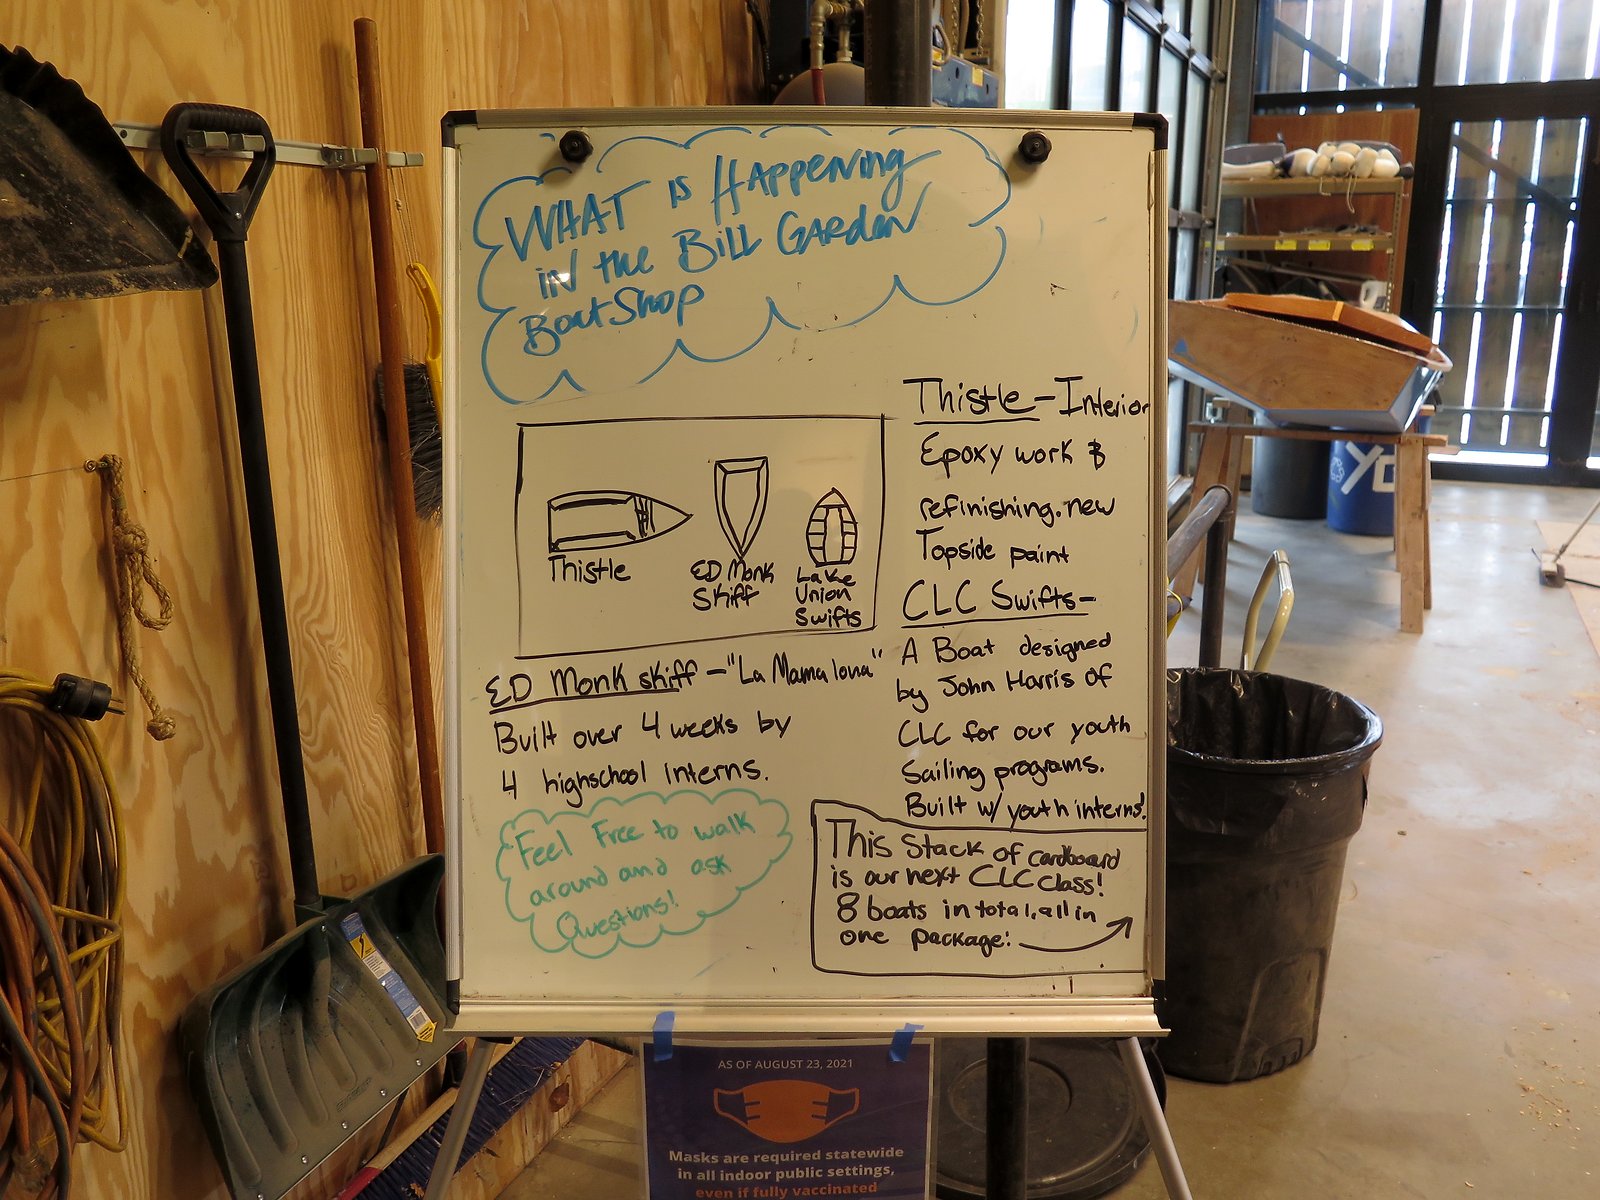 WHAT is HAppening
in the Bill GARden
Boat Shop
Thistle
ED Monk
Skiff
Lake
Union
Swifts
ED Monk skiff - "La Mamalona"
Built over 4 weeks by
4 highschool interns.
Feel Free to walk
around and ask
Questions!
Thistle - Interior
Epoxy work &
refinishing. new
Topside paint
CLC Swifts-
A Boat designed
by John Harris of
CLC for our youth
Sailing programs.
Built w/ youth interns!
This Stack of cardboard
is our next CLC class!
8 boats in total, all in
one package:
AS OF AUGUST 23, 2021
Masks are required statewide
in all indoor public settings,
even if fully vaccinated